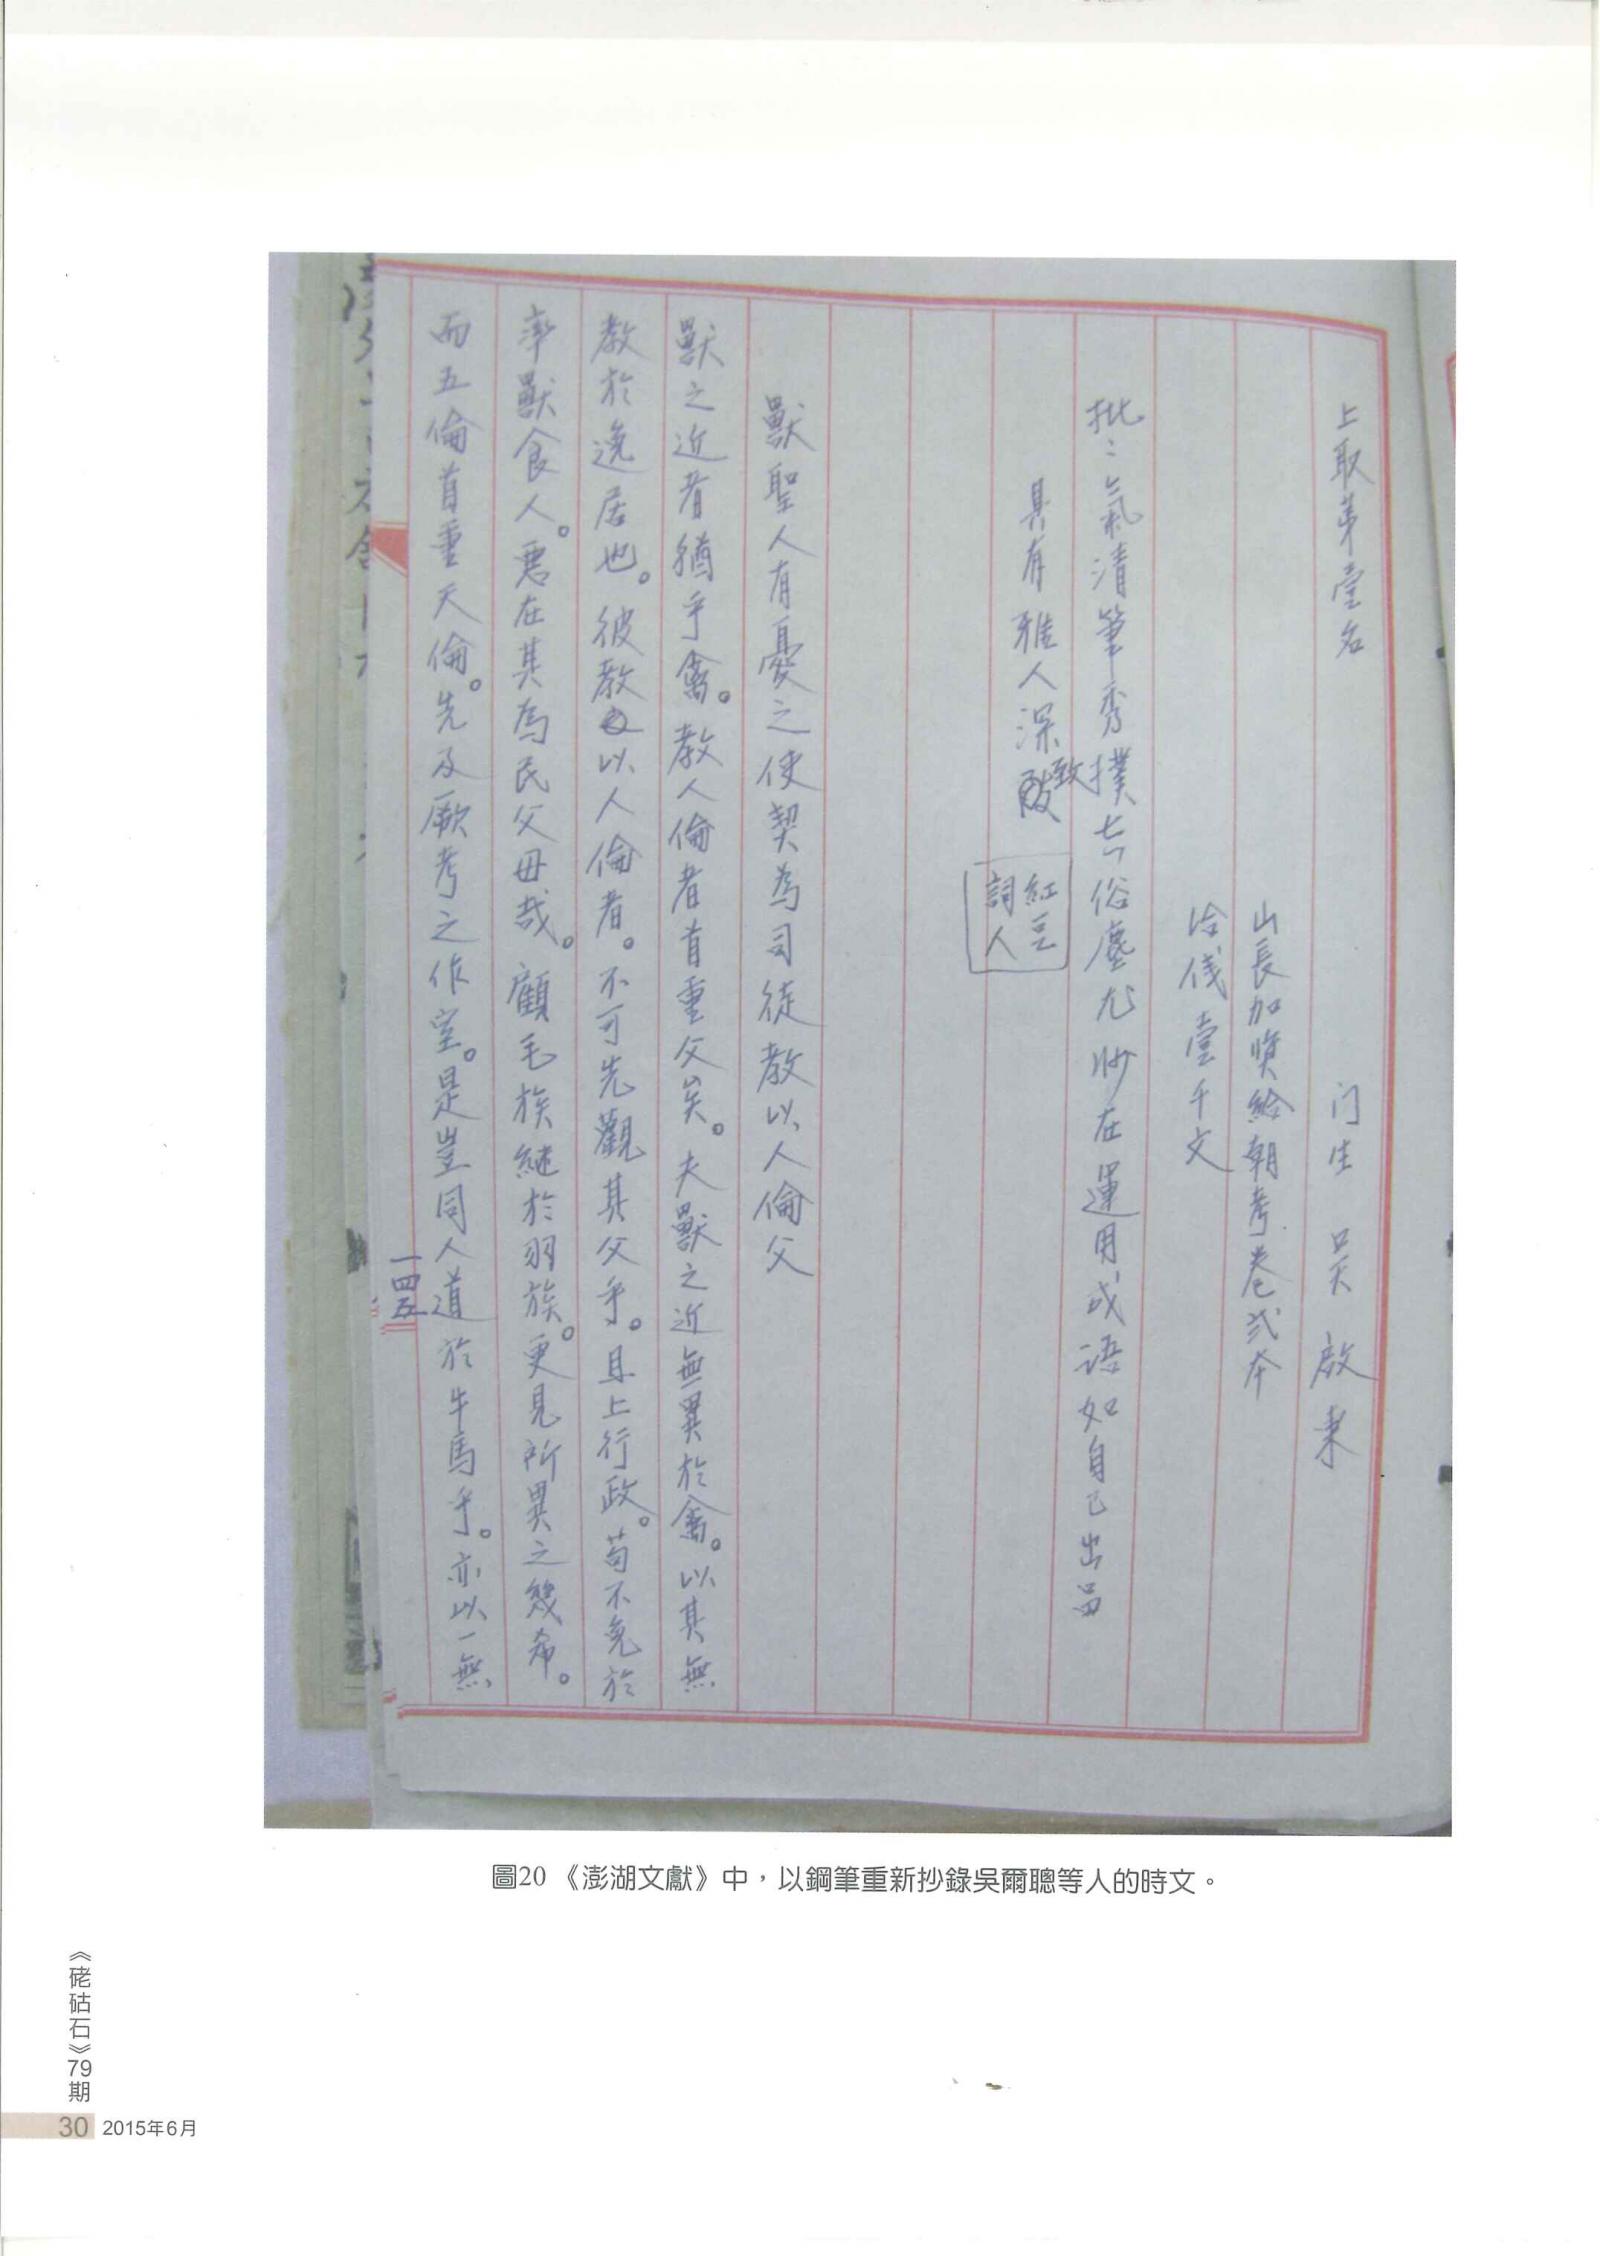 上取第壹名　門生　吳啟秉
山長加獎給朝考卷弍本
冷儀壹千文
批：氣清筆秀撲去俗塵尤妙在運用成语如自己出品
具有雅人深致
紅豆
詞人
獸聖人有憂之使契為司徒教以人倫父
獸之近者猶乎禽。教人倫者首重父矣。夫獸之近無異於禽。以其無
教於逸居也。彼教之以人倫者。不可先觀其父乎。且上行政。苟不免於
率獸食人。惡在其為民父母哉。顧毛族継於羽族。更見所異之幾希。
而五倫首重天倫。先及厥考之作室。是豈同人道於牛馬乎。亦以一無
一四五
圖20 《澎湖文獻》中，以鋼筆重新抄錄吳爾聰等人的時文。
《硓𥑮石》79期
30 2015年6月